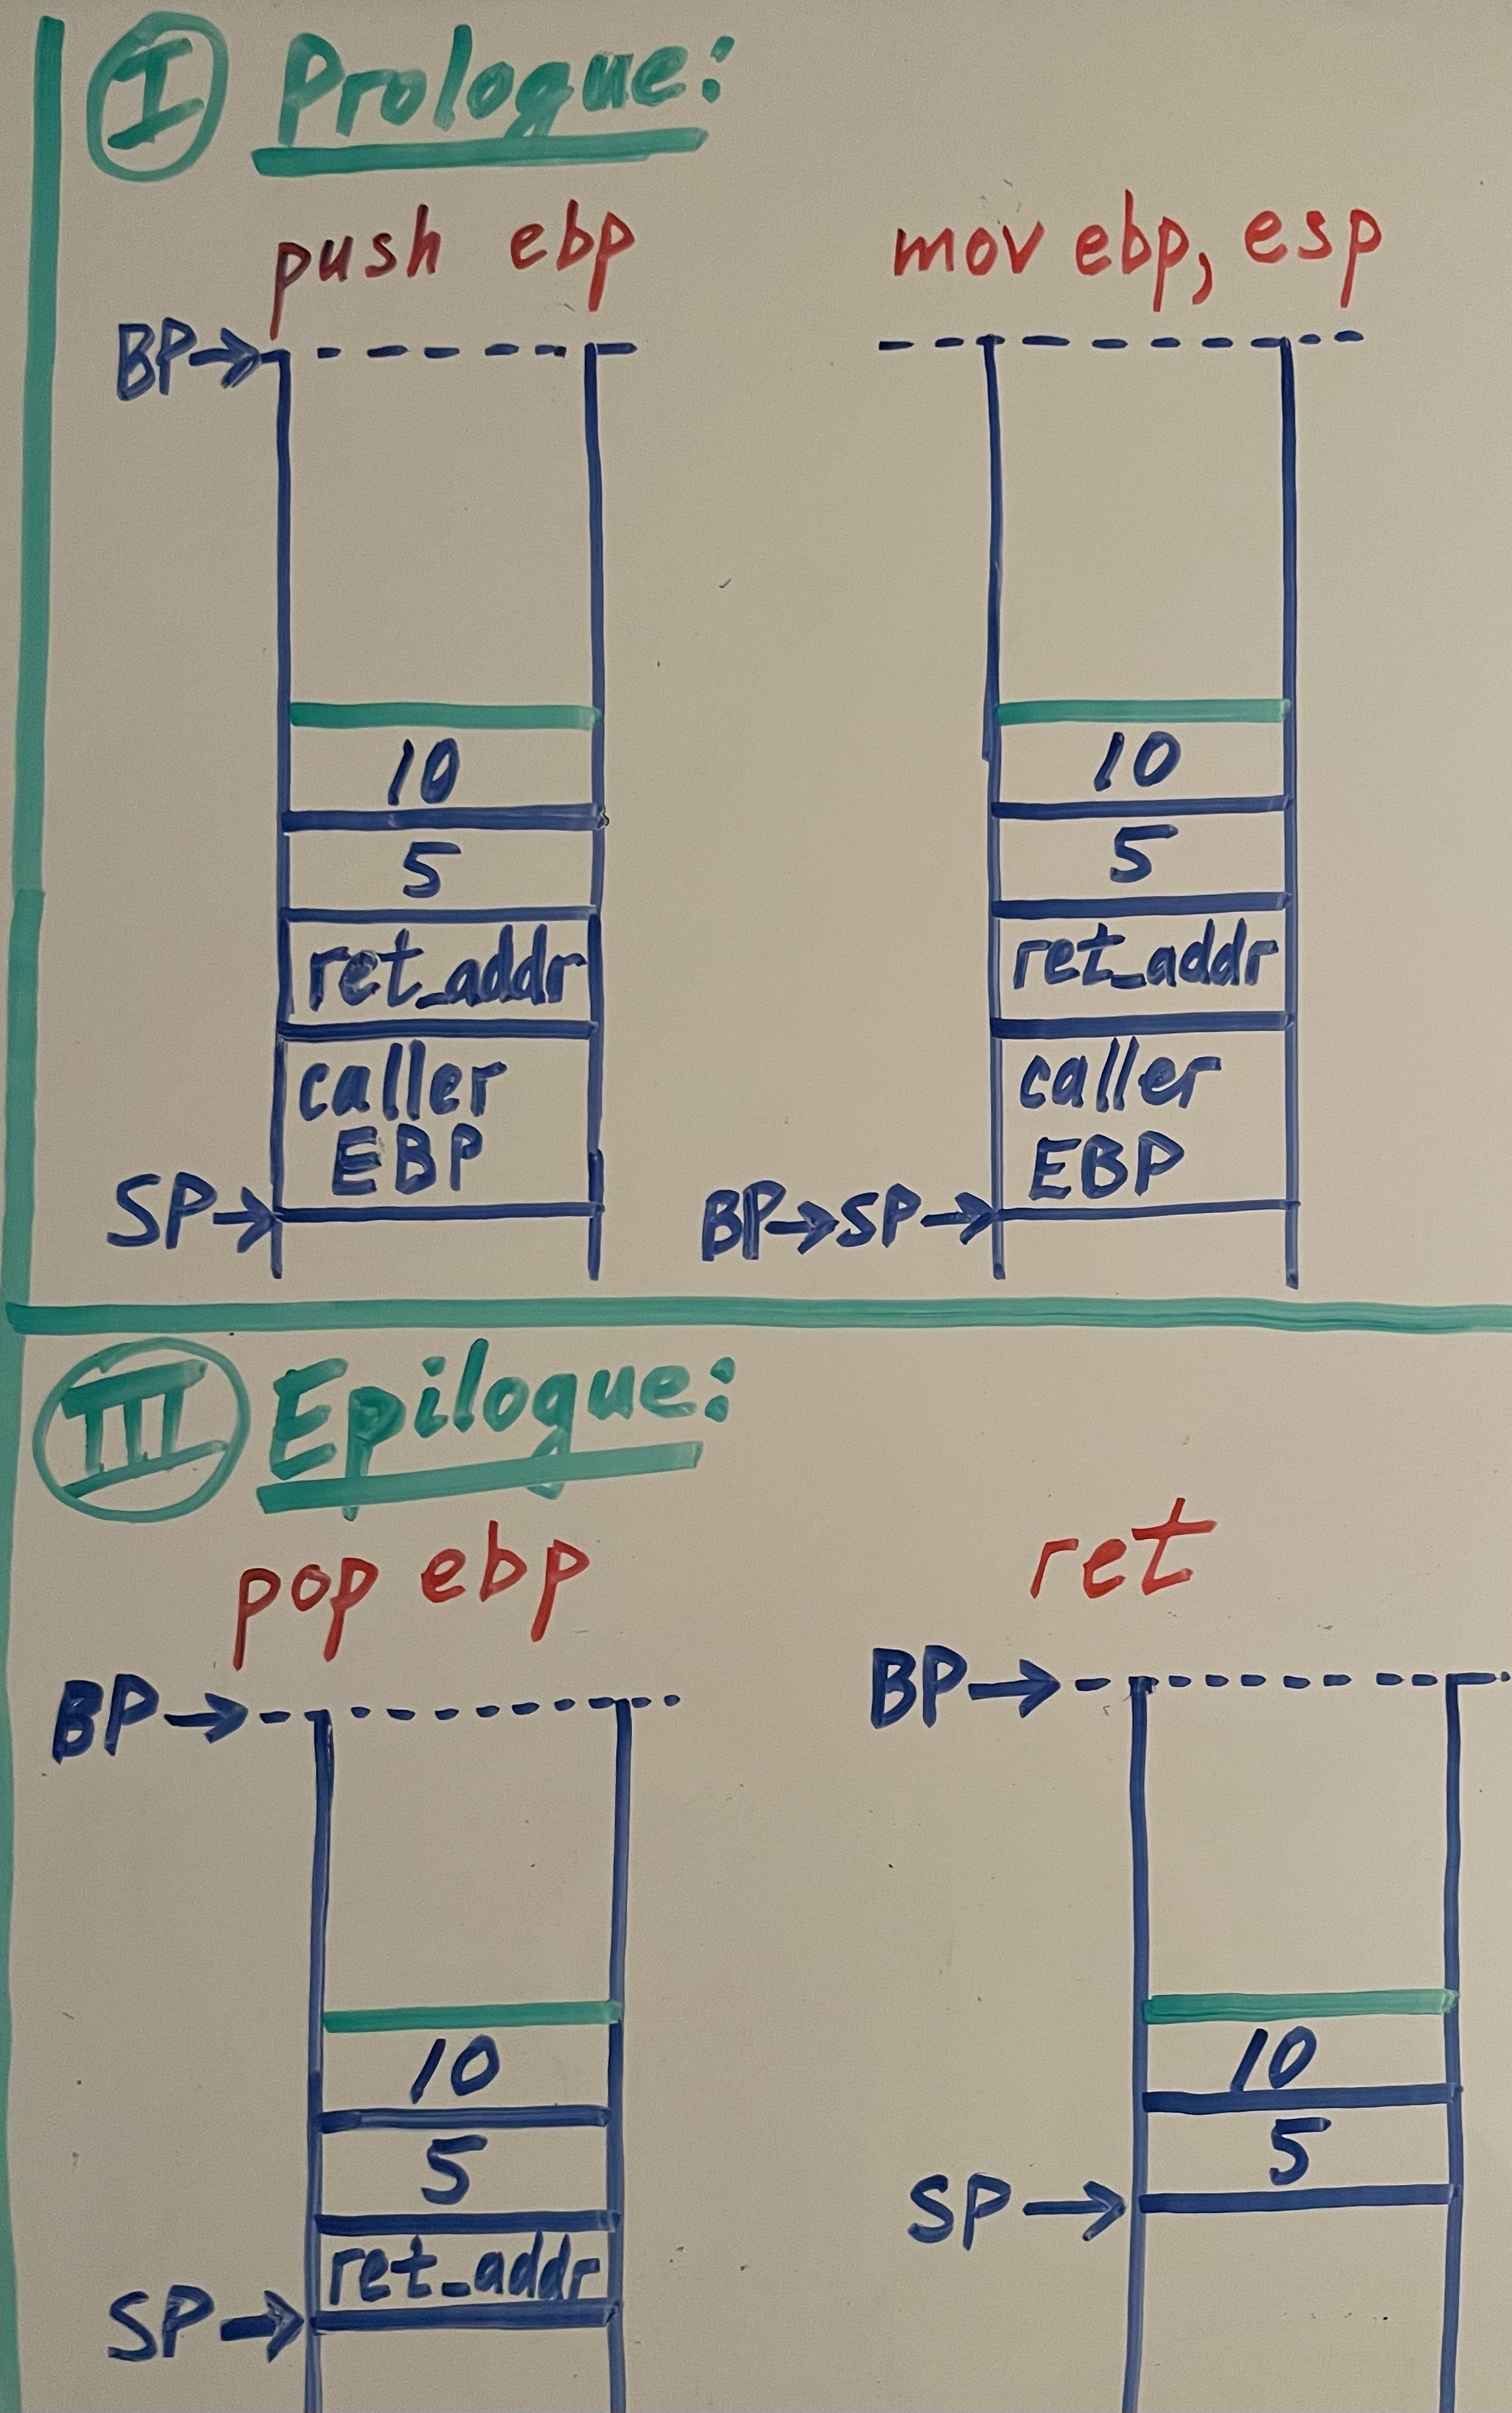 I Prologue:
push ebp
BP→
10
5
ret_addr
caller
EBP
SP→
mov ebp, esp
10
5
ret_addr
caller
EBP
BP→SP→
III Epilogue:
pop ebp
BP→
10
5
ret_addr
SP→
ret
BP→
10
5
SP→